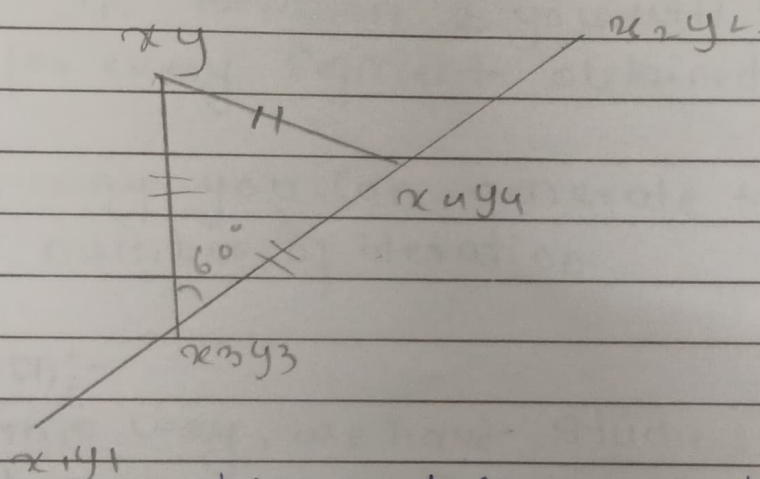 xy
x2y2
x4y4
60°
x3y3
x1y1